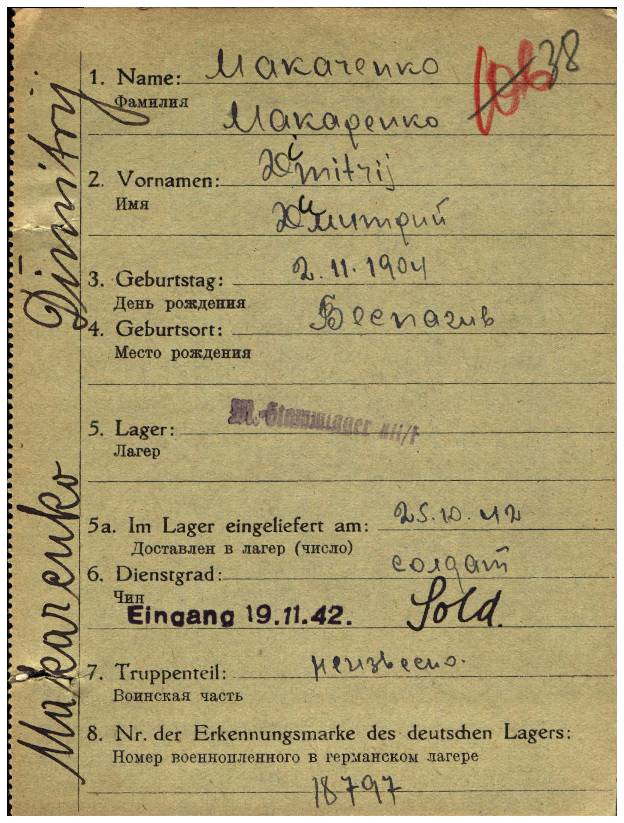 1. Name: Макаченко
Фамилия
Макаренко
38
2. Vornamen: Dmitrij
Имя
Дмитрий
3. Geburtstag: 2.11.1904
День рождения
4. Geburtsort:
Место рождения
5. Lager: M.-Stammlager
Лагер
5a. Im Lager eingeliefert am: 25.10.42
Доставлен в лагер (число)
6. Dienstgrad: солдат
Чин
Eingang 19.11.42. Sold.
7. Truppenteil: неизвесно.
Воинская часть
8. Nr. der Erkennungsmarke des deutschen Lagers:
Номер военнопленного в германском лагере
18797
Makarenko Dimitrij